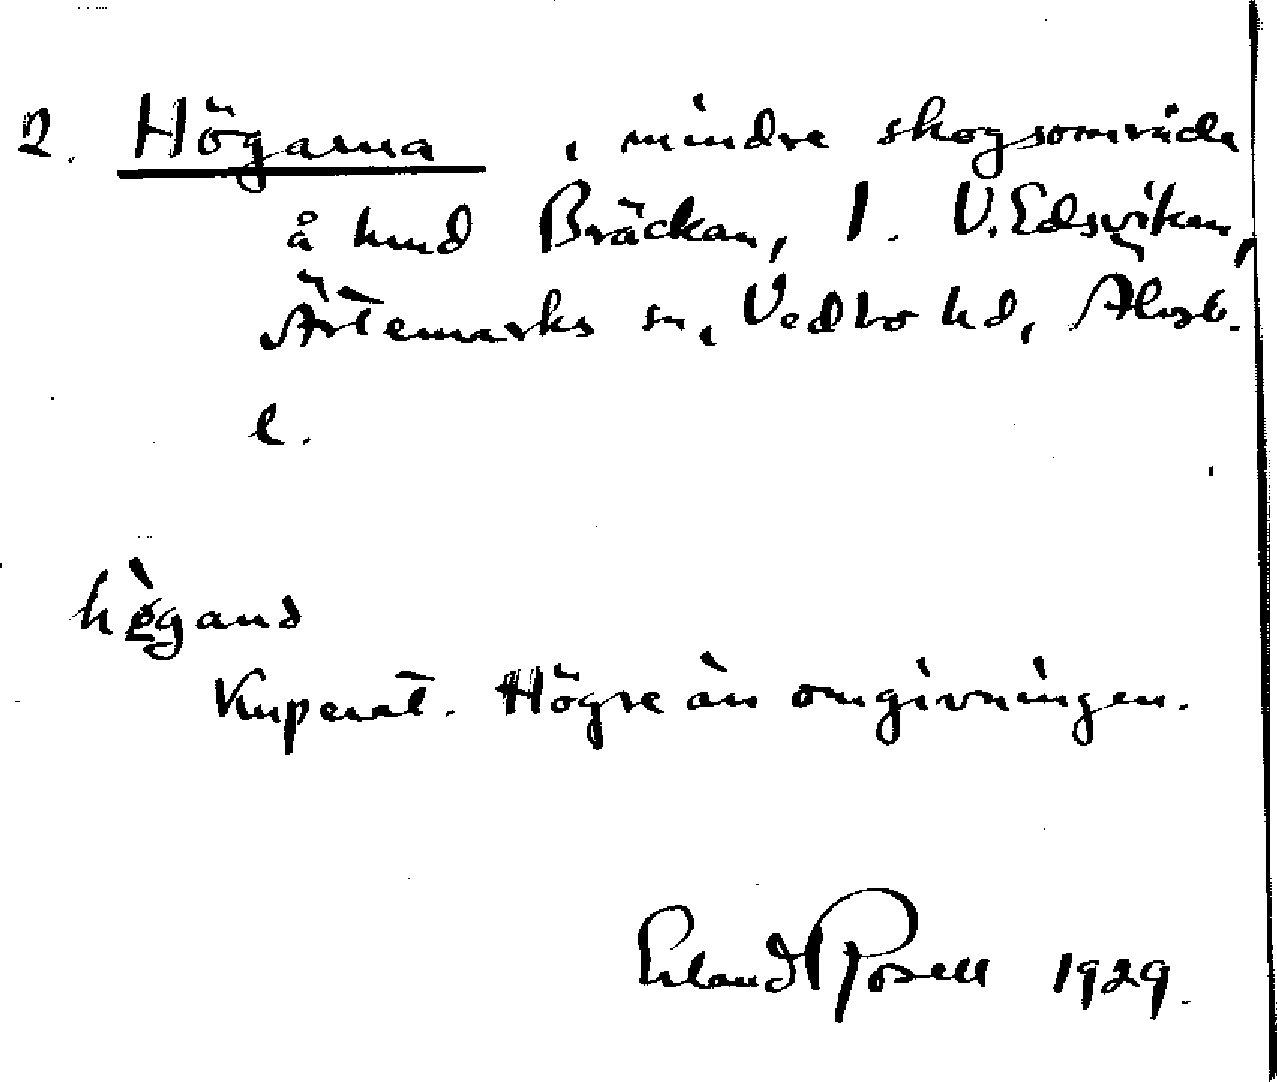 2. Högarna, mindre skogsområde
å hmd Bräckan, 1. V. Edsviken,
Ärtemarks sn, Vedbo hd, Älvsb.
l.
hø̀gans
Kuperat. Högre än omgivningen.
Erland Rosell 1929.